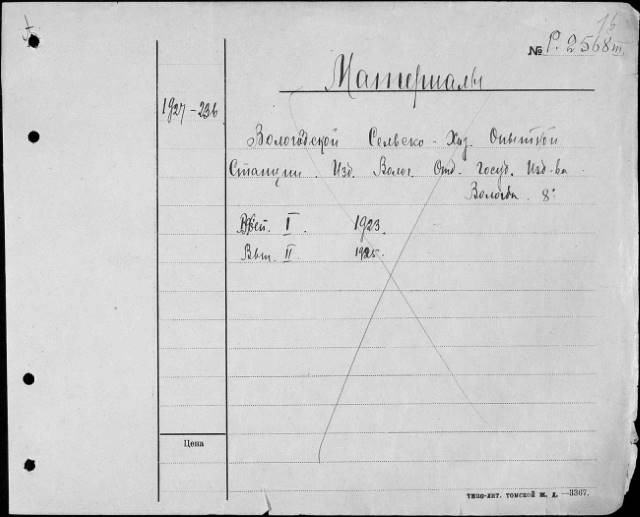 15
№ Р. 2568 III
Материалы
1927-236
Вологодской Сельско-Хоз. Опытной
Станции. Изд. Волог. Отд. Госуд. Изд-ва.
Вологда. 8°
Вып. I. 1923.
Вып. II 1925.
Цена
ТИПО-ЛИТ. ТОМСКОЙ Ж. Д. —3367.